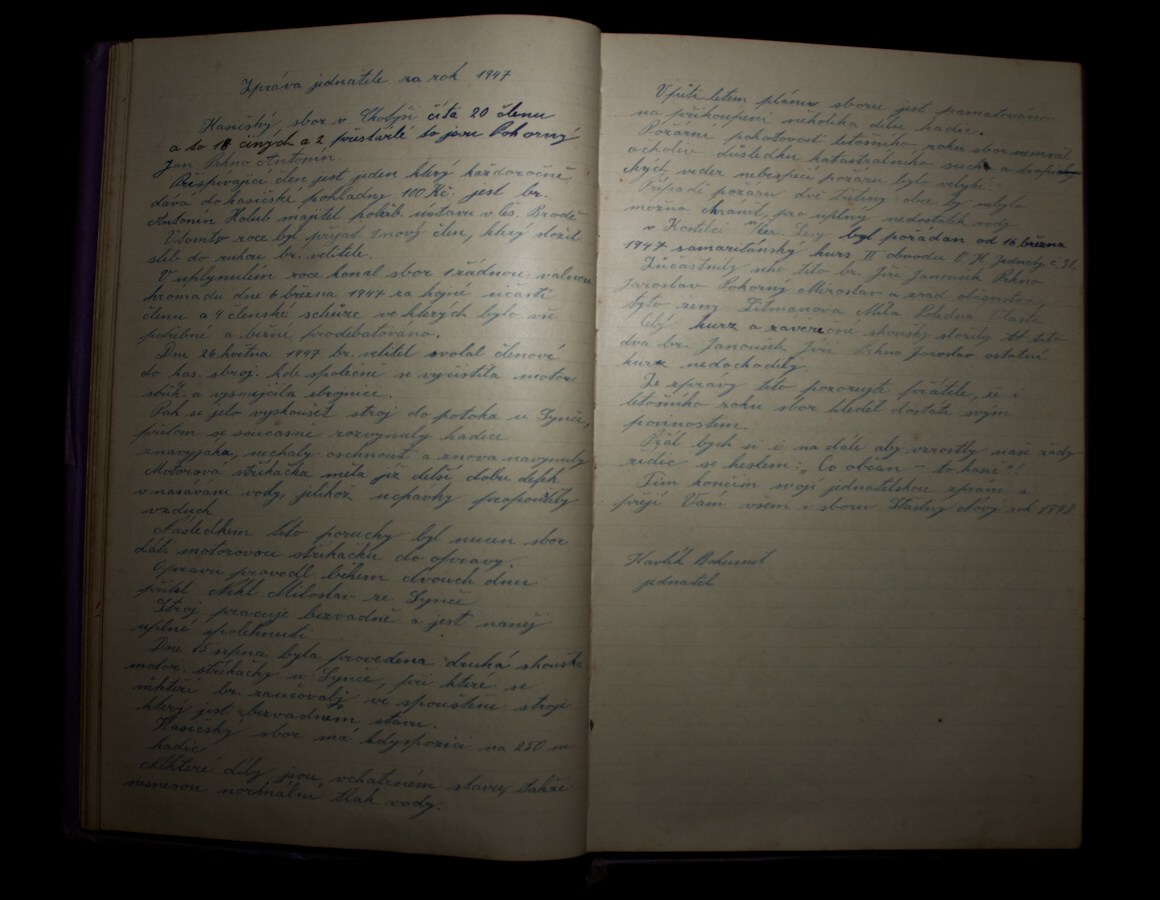 Zpráva jednatele za rok 1947
Hasičský sbor v Chotýši čítá 20 členu
a to 18 činých a 2 přestárlé to jsou Pokorný
Jan Prkno Antonín.
Přispívající člen jest jeden který každoročně
dává do hasičské pokladny 100 Kč. jest br.
Antonín Holub majitel pohřeb. ústavu v Čes. Brodě
Vtomto roce byl přijat 1 nový člen, který složil
slib do rukou br. velitele.
V uplynulém roce konal sbor 1 řádnou valnou
hromadu dne 6 března 1947 za hojné účasti
členu a 9 členské schůze ve kterých bylo vše
potřebné a běžní prodebatováno.
Dne 26 května 1947 br. velitel svolal členové
do has. zbroj. kde společně se vyčistila motor.
střík. a uspořádala zbrojnice.
Pak se jelo vyskoušet stroj do potoka u Synče,
přitom se současně rozvynuly hadice
znavyjáka, nechaly oschnout a znova navynuly
Motorová stříkačka měla již delší dobu defek
v nasávání vody, jelikož ucpávky propouštěly
vzduch
Následkem této poruchy byl nucen sbor
dáti motorovou stříkačku do opravy.
Opravu provedl během dvouch dnu
přítel Nikl Miloslav ze Synče
Stroj pracuje bezvadně a jest naněj
uplné spolehnutí
Dne 15 srpna byla provedena druhá skouška
motor. stříkačky u Synče, při které se
někteří br. zaučovaly ve spouštění stroje
který jest bezvadném stavu.
Hasičský sbor má kdyspozici na 250 m
hadic
Některé díly jsou vchatrném stavu, takže
nesnesou normální tlak vody.
Vpříštím letem plánu sboru jest pamatováno
na přikoupení několika dílcu hadic.
Požární pohotovost letošního roku sbor neměl
ačkoliv důsledku katastrálního sucha a tropick
kých veder nebespečí požáru bylo velyké.
Případě požáru dvě třetiny obce by nebylo
možna chránit, pro uplný nedostatek vody
v Kostelci n Čer. Lesy byl pořádán od 16 března
1947 samaritánský kurs II obvodu O. H. Jednoty č. 31.
Zůčastnily seho tito br. Jiří Janoušek Prkno
Jaroslav Pokorný Miroslav a zřad občanstva,
tyto ženy Litmanová Míla Vlasta
Celý kurz a závěrečné skoušky složily tito
dva br. Janoušek Jiří Prkna Jaroslav ostatní
kurz nedochodily.
Ze zprávy této pozorujte přátelé, že i
letošního roku sbor hleděl dostáti svým
povinostem.
Přál bych si i na dále aby vzrostly naše řady
řidíc se heslem: „Co občan – to hasič"!
Tím končím svojí jednatelskou zprávu a
přeji Vám všem i sboru Štástný Nový rok 1948
Havlík Bohumil
jednatel